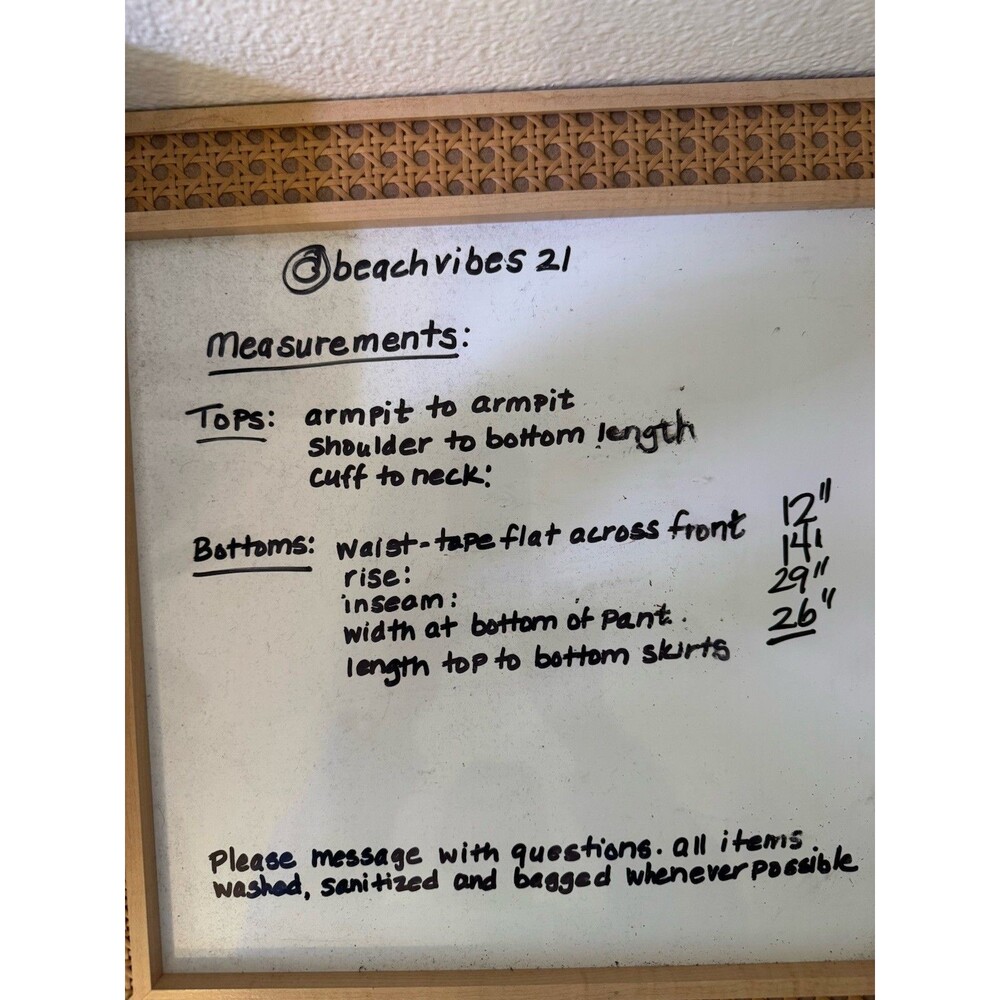 @beachvibes21
Measurements:
Tops: armpit to armpit
shoulder to bottom length
cuff to neck:
Bottoms: waist-tape flat across front 12"
rise: 14"
inseam: 29"
width at bottom of pant. 26"
length top to bottom skirts
Please message with questions. all items.
washed, sanitized and bagged whenever possible